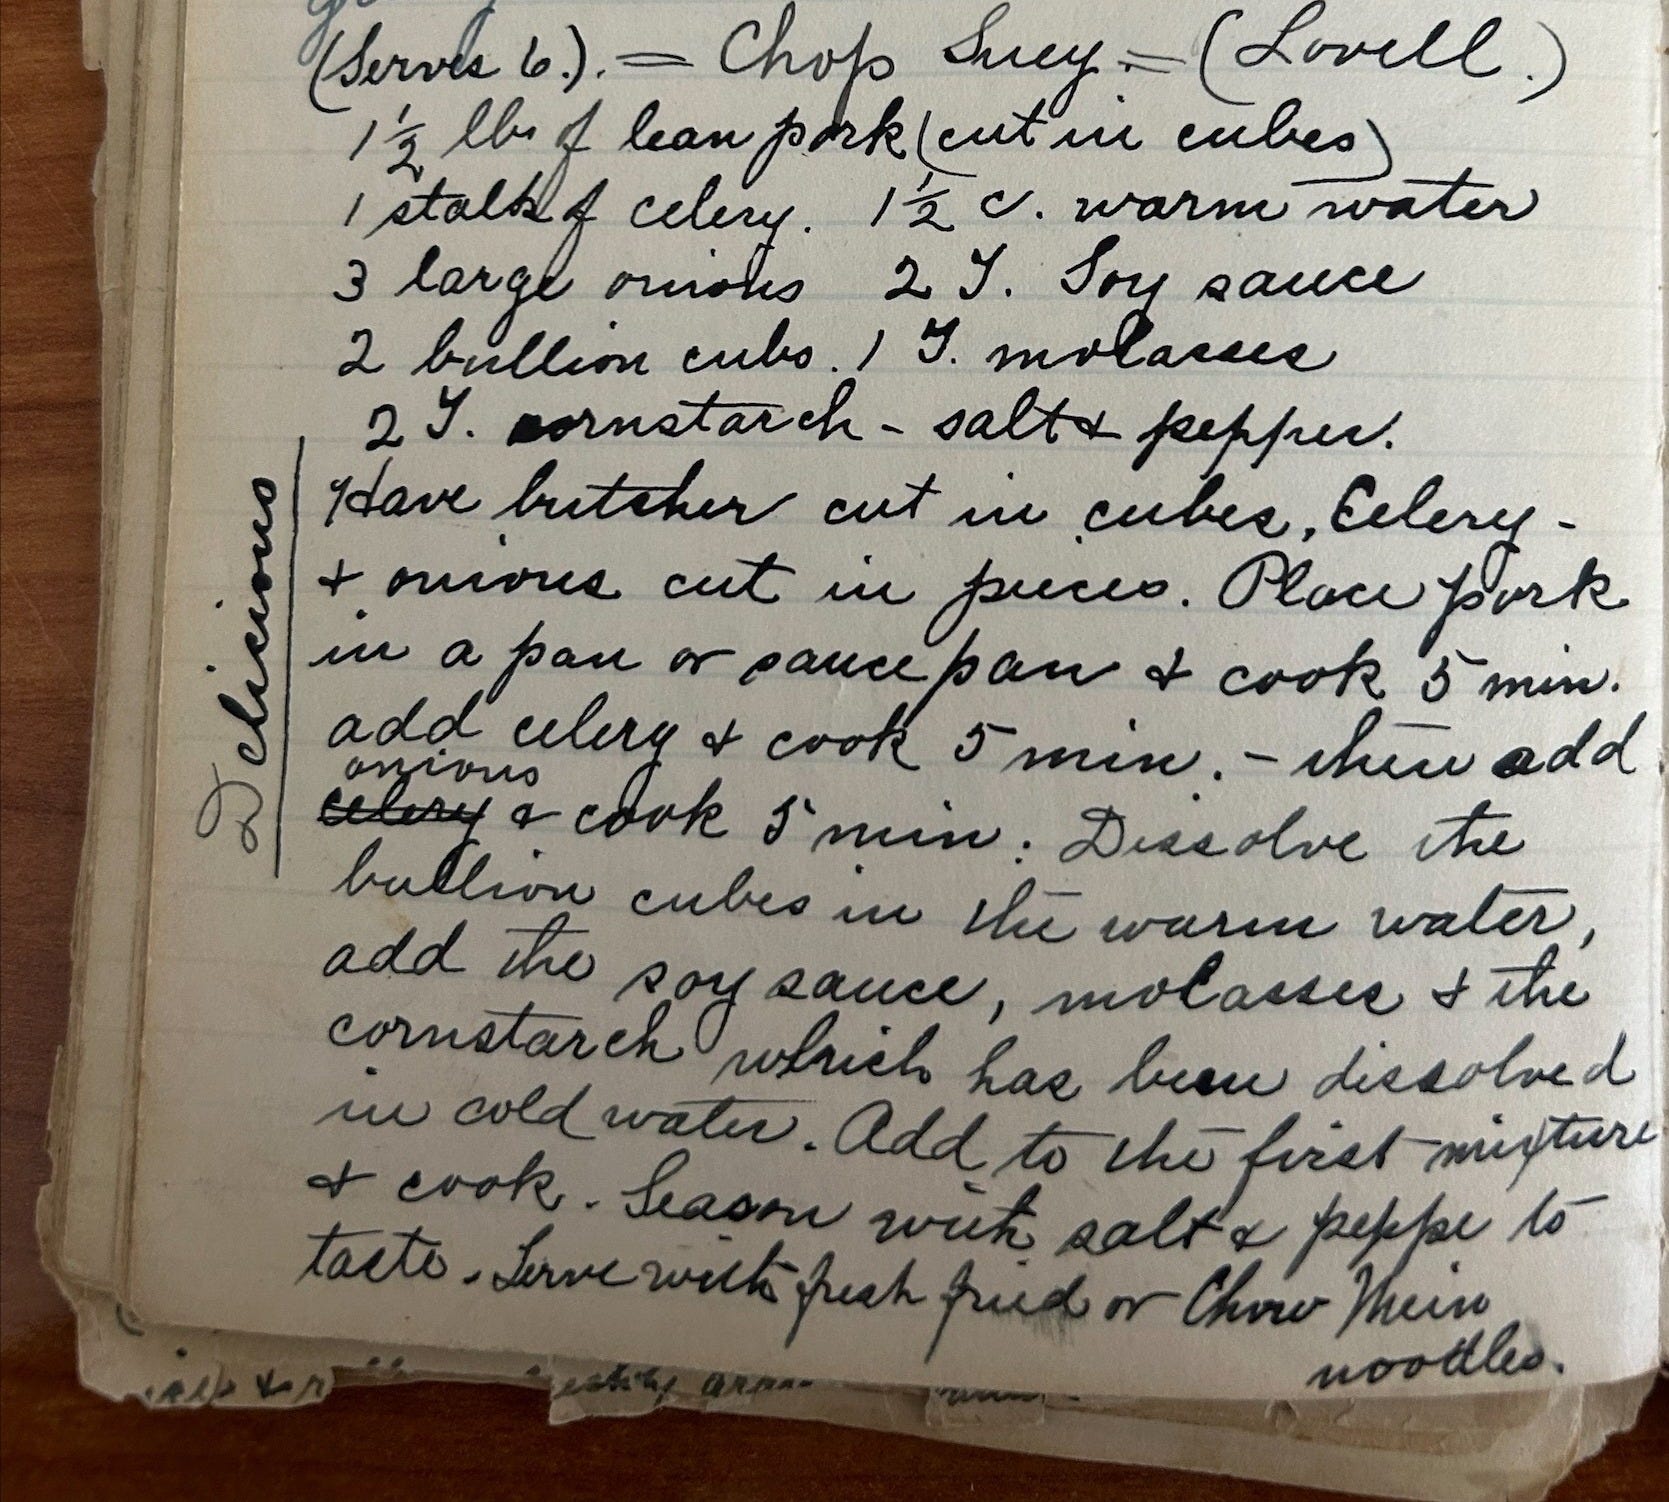 (Serves 6.). = Chop Suey. = (Lovell.)
1 1/2 lbs of lean pork (cut in cubes)
1 stalk of celery. 1 1/2 c. warm water
3 large onions 2 T. Soy sauce
2 bullion cubs. 1 T. molasses
2 T. cornstarch - salt & pepper.
Delicious
Have butcher cut in cubes, Celery -
& onions cut in pieces. Place pork
in a pan or sauce pan & cook 5 min.
add celery & cook 5 min. - then add
onions
celery & cook 5 min. Dissolve the
bullion cubes in the warm water,
add the soy sauce, molasses & the
cornstarch which has been dissolved
in cold water. Add to the first mixture
& cook. Season with salt & peppe to
taste. Serve with fresh fried or Chow Mein
noodles.